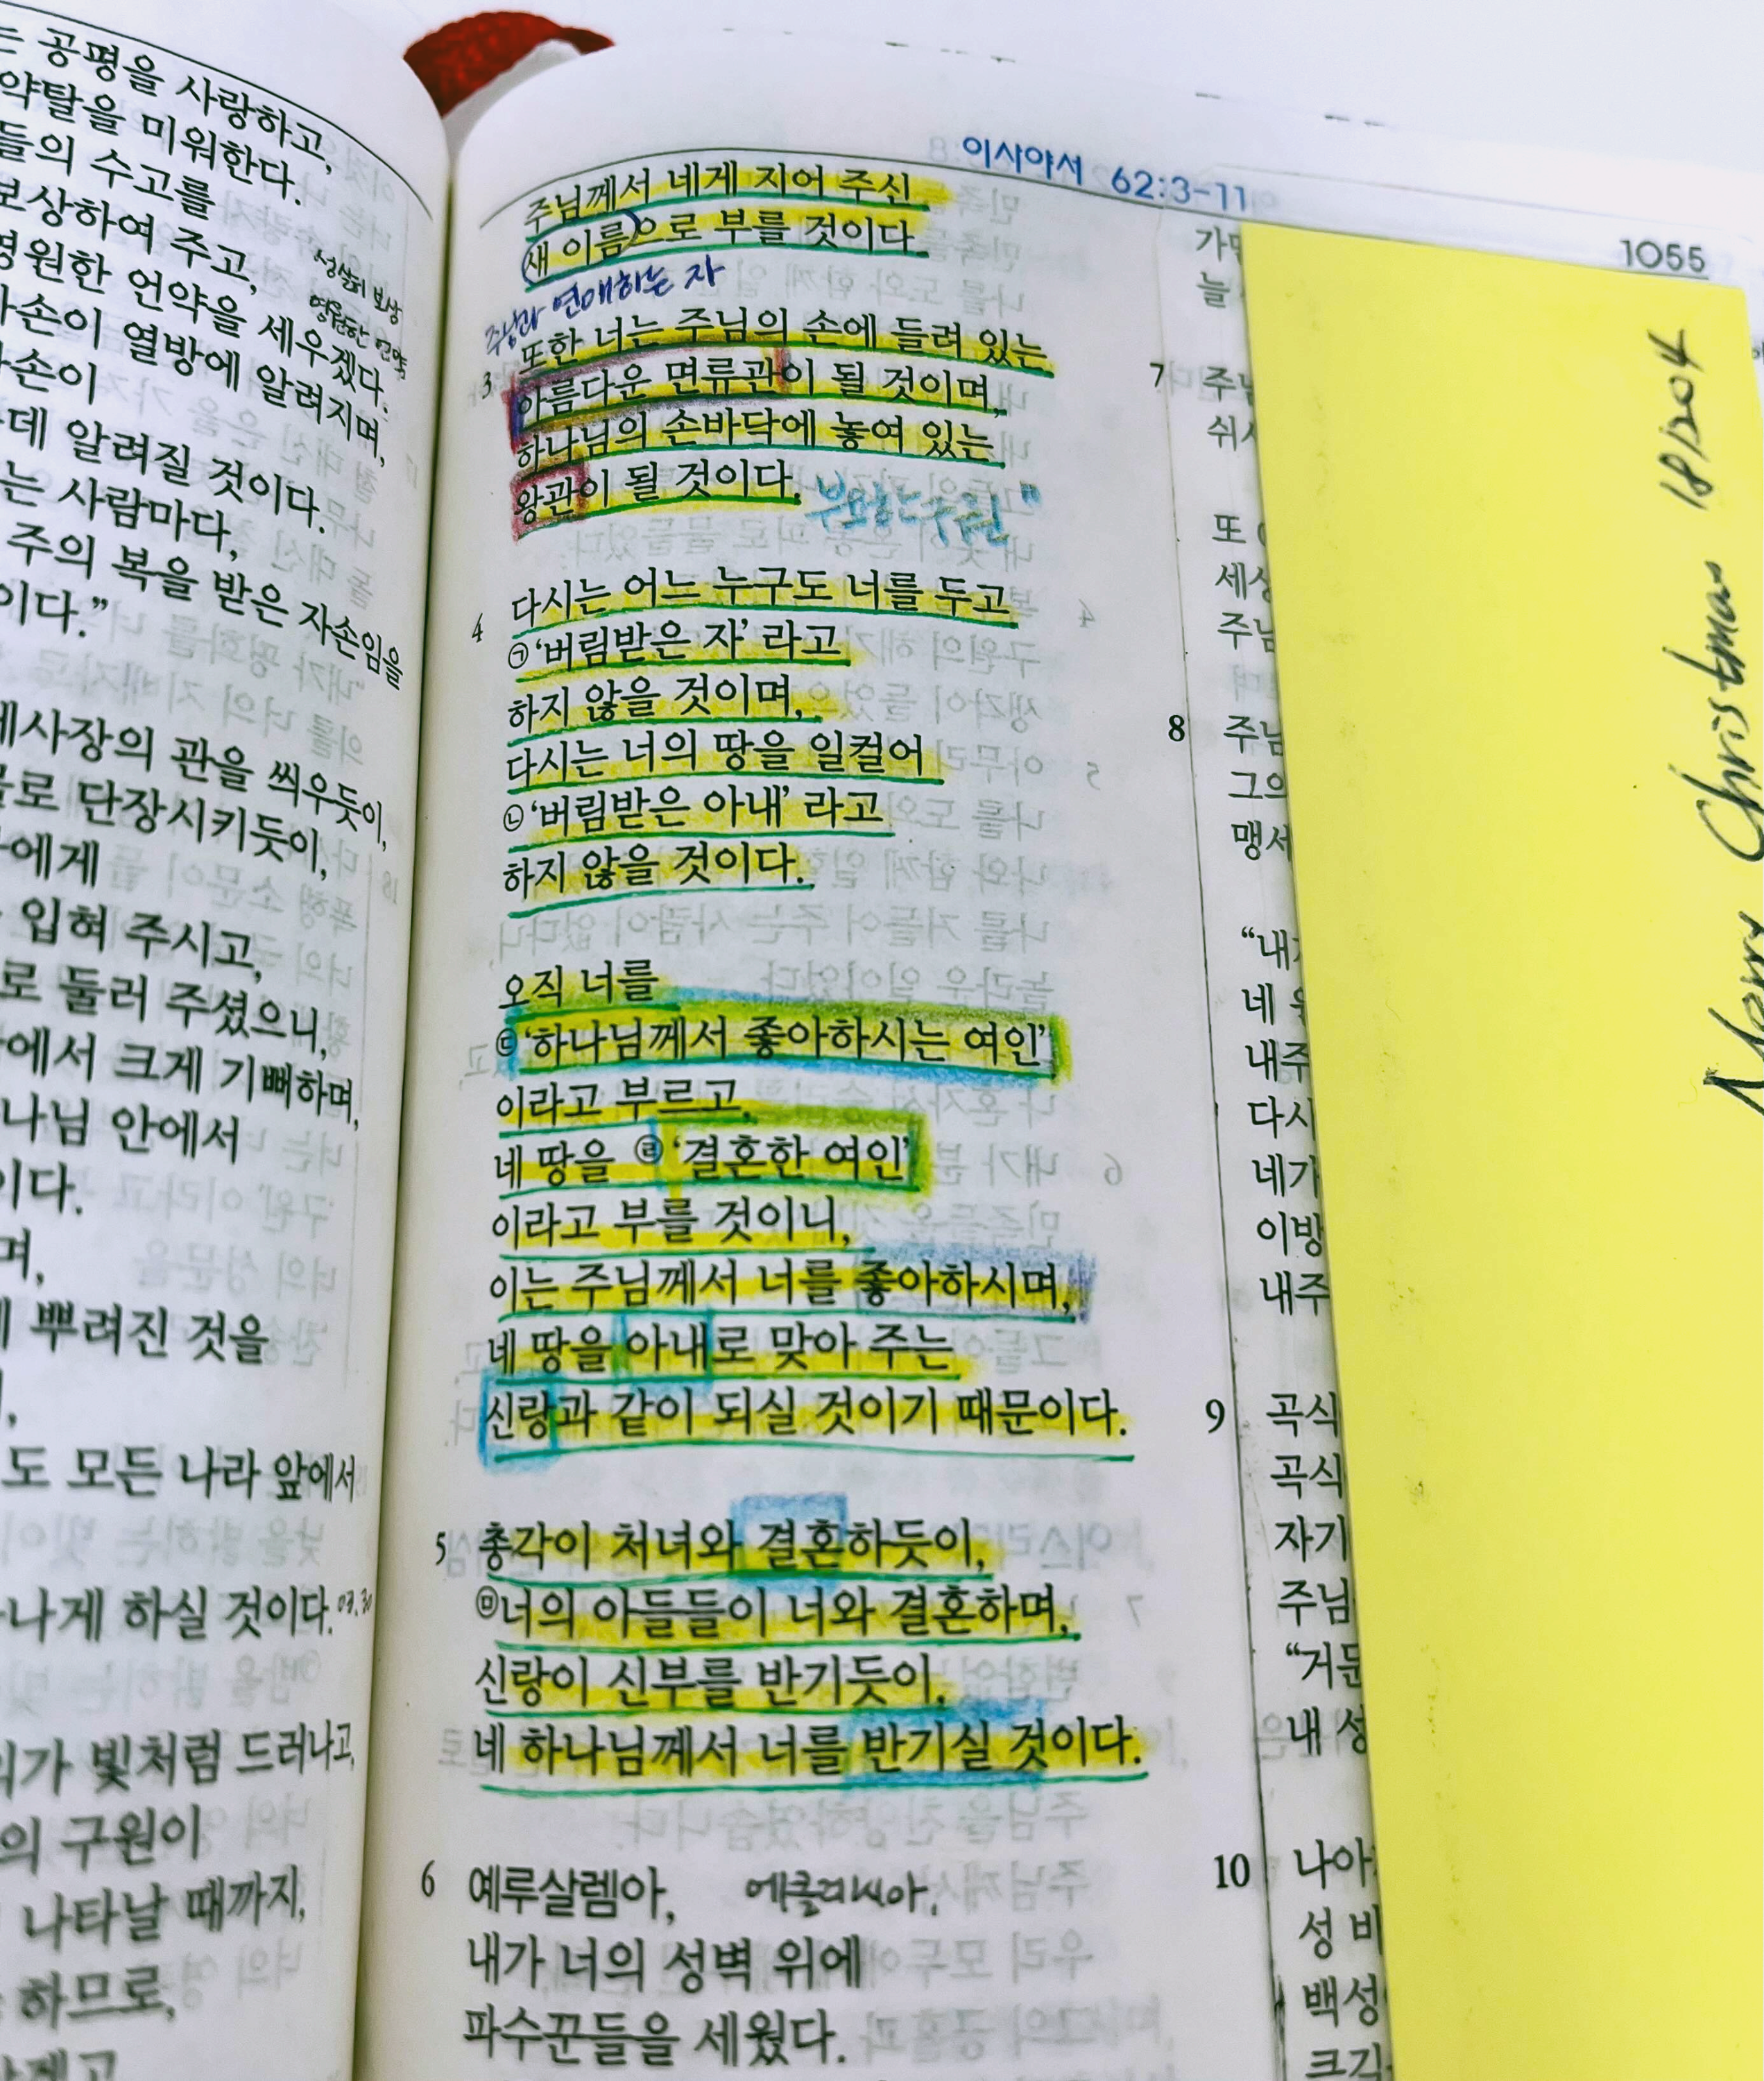 는 공평을 사랑하고,
약탈을 미워한다.
들의 수고를
보상하여 주고,
영원한 언약을 세우겠다.
자손이 열방에 알려지며,
손이
데 알려질 것이다.
는 사람마다,
주의 복을 받은 자손임을
이다.”
제사장의 관을 씌우듯이,
물로 단장시키듯이,
에게
입혀 주시고,
로 둘러 주셨으니,
에서 크게 기뻐하며,
나님 안에서
이다.
며,
뿌려진 것을
도 모든 나라 앞에서
나게 하실 것이다.
의가 빛처럼 드러나고,
의 구원이
나타날 때까지,
하므로,
성실히 보상
영원한 언약
이사야서 62:3-11
1055
주님께서 네게 지어 주신
새 이름으로 부를 것이다.
주님과 연애하는 자
3 또한 너는 주님의 손에 들려 있는
아름다운 면류관이 될 것이며,
하나님의 손바닥에 놓여 있는
왕관이 될 것이다.
4 다시는 어느 누구도 너를 두고
㉠‘버림받은 자’ 라고
하지 않을 것이며,
다시는 너의 땅을 일컬어
㉡‘버림받은 아내’ 라고
하지 않을 것이다.
오직 너를
㉢‘하나님께서 좋아하시는 여인’
이라고 부르고,
네 땅을 ㉣‘결혼한 여인’
이라고 부를 것이니,
이는 주님께서 너를 좋아하시며,
네 땅을 아내로 맞아 주는
신랑과 같이 되실 것이기 때문이다.
5 총각이 처녀와 결혼하듯이,
㉤너의 아들들이 너와 결혼하며,
신랑이 신부를 반기듯이,
네 하나님께서 너를 반기실 것이다.
6 예루살렘아, 에클레시아,
내가 너의 성벽 위에
파수꾼들을 세웠다.
늘
7 주님
쉬
또
세상
주님
8 주님
그의
맹세
“내가
네
내주
다시
네가
이방
내주
9 곡식
곡식
자기
주님
“거둔
내 성
10 나아
성 비
백성
크게
Merry Christmas 18/204